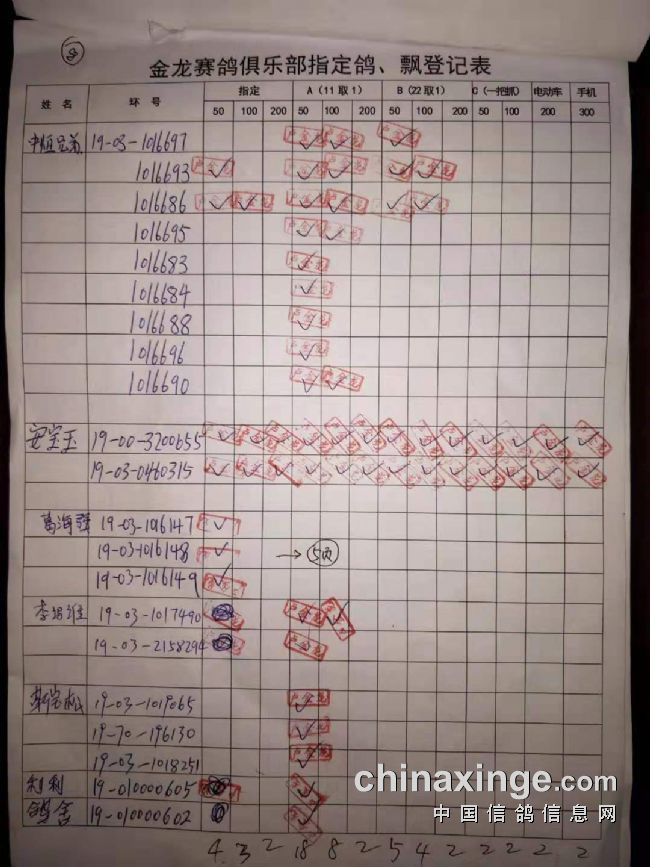 8
金龙赛鸽俱乐部指定鸽、飘登记表
姓名 环号 指定 A(11取1) B(22取1) C(一把抓) 电动车 手机
50 100 200 50 100 200 50 100 200 50 100 200 300
19-03-1016697
1016693
1016686
1016695
1016683
1016684
1016688
1016696
1016690
安宝玉 19-00-3200655
19-03-0460315
葛海强 19-03-1016147
19-03-1016148 → 5页
19-03-1016149
19-03-1017490
19-03-2158294
19-03-1019065
19-70-196130
19-03-1018251
利利 19-010000605
鸽舍 19-010000602
4 3 2 18 8 2 5 4 2 2 2 2 2
chinaxinge.com
中国信鸽信息网